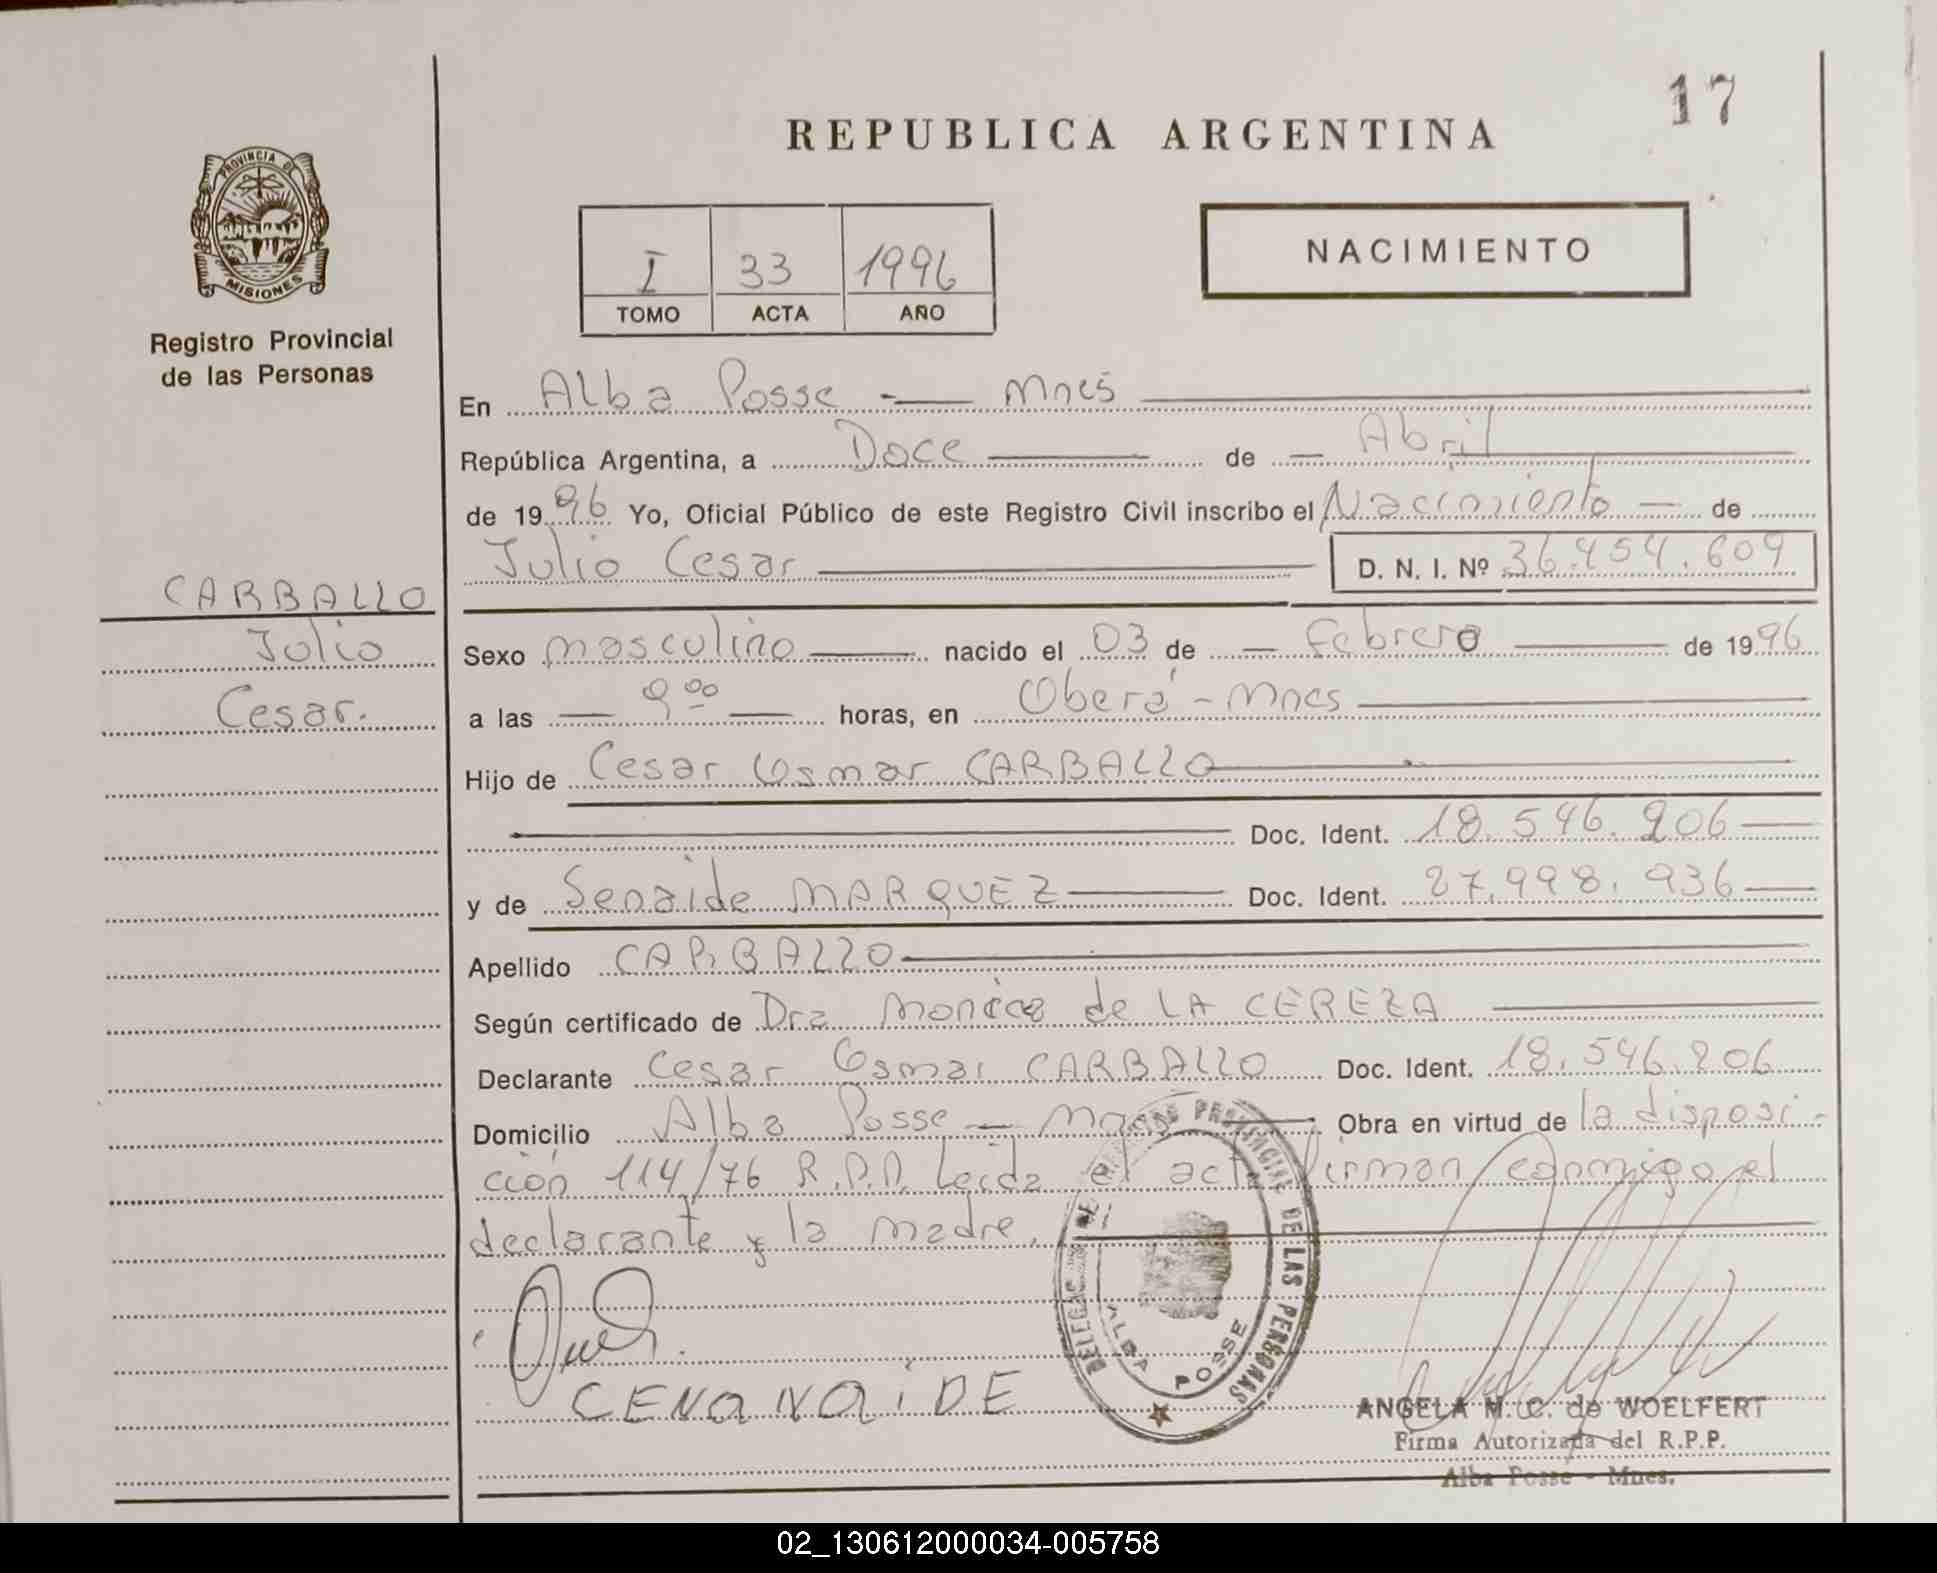 17
REPUBLICA ARGENTINA
PROVINCIA DE
MISIONES
Registro Provincial
de las Personas
I 33 1996
TOMO ACTA AÑO
NACIMIENTO
En Alba Posse - Mnes
República Argentina, a Doce de Abril
de 1996 Yo, Oficial Público de este Registro Civil inscribo el Nacimiento de
Julio Cesar D. N. I. Nº 36.454.609
CARBALLO
Julio
Cesar.
Sexo masculino nacido el 03 de Febrero de 1996
a las 9 00 horas, en Oberá - Mnes
Hijo de Cesar Osmar CARBALLO
Doc. Ident. 18.546.206
y de Senaide MARQUEZ Doc. Ident. 27.998.936
Apellido CARBALLO
Según certificado de Dra Monica de LA CEREZA
Declarante Cesar Osmar CARBALLO Doc. Ident. 18.546.206
Domicilio Alba Posse - Obra en virtud de la disposi-
ción 114/76 R.P.P. Leída el acta firman conmigo el
declarante y la madre.
PROVINCIAL DE LAS PERSONAS
ALBA POSSE
CENANAiDE
ANGELA M. C. de WOELFERT
Firma Autorizada del R.P.P.
Alba Posse - Mnes.
02_130612000034-005758